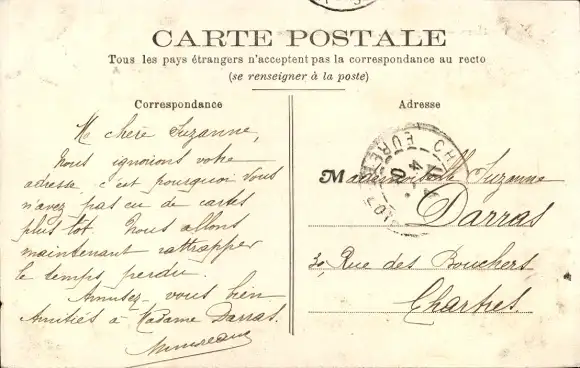 CARTE POSTALE
Tous les pays étrangers n'acceptent pas la correspondance au recto
(se renseigner à la poste)
Correspondance
Adresse
M chère Suzanne,
Nous ignorions votre
adresse c'est pourquoi vous
n'avez pas eu de cartes
plus tôt. Nous allons
maintenant rattrapper
le temps perdu.
Amusez-vous bien
Amitiés à Madame Darras.
Mademoiselle Suzanne
Darras
30, Rue des Bouchers
Chartres.